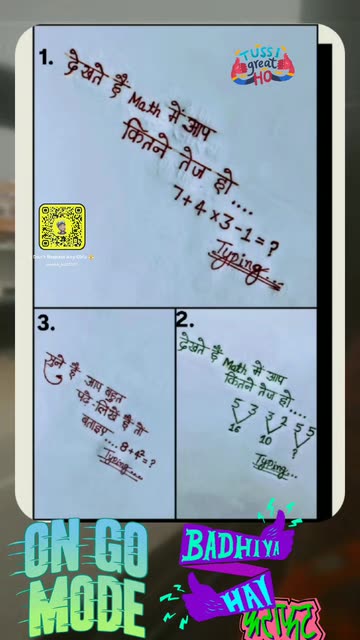 1.
TUSSI
great
HO
देखते हैं Math में आप
कितने तेज हो....
7+4×3-1=?
Typing...
Don't Request Any Girls
3.
सुने हैं आप बहुत
पढ़े-लिखे हैं तो
बताइए.... 8+4²=?
Typing...
2.
देखते हैं Math में आप
कितने तेज हो....
5 3 3 2 5 5
15 10 ?
Typing...
ON GO
MODE
BADHIYA
HAI